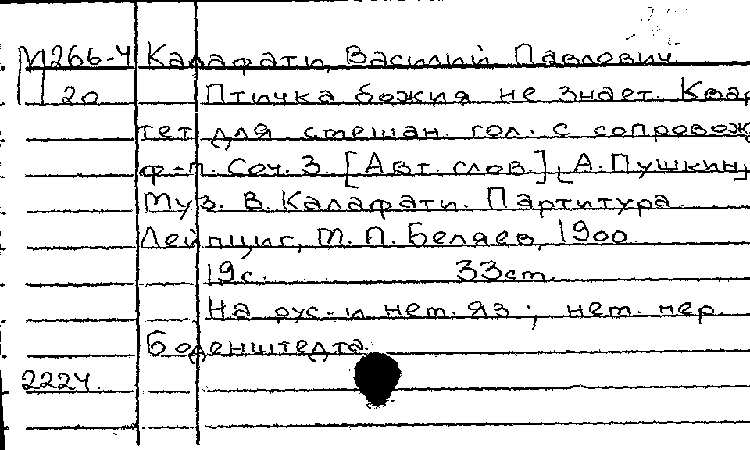 М266-4 Калафати, Василий Павлович
20 Птичка божия не знает. Квар
тет для смешан. гол. с сопровож
ф-п. Соч. 3 [Авт. слов.], А. Пушкин,
Муз. В. Калафати. Партитура
Лейпциг, М. П. Беляев, 1900
19с. 33см.
На рус. и нем. яз; нем. пер.
Боденштедта.
2224.